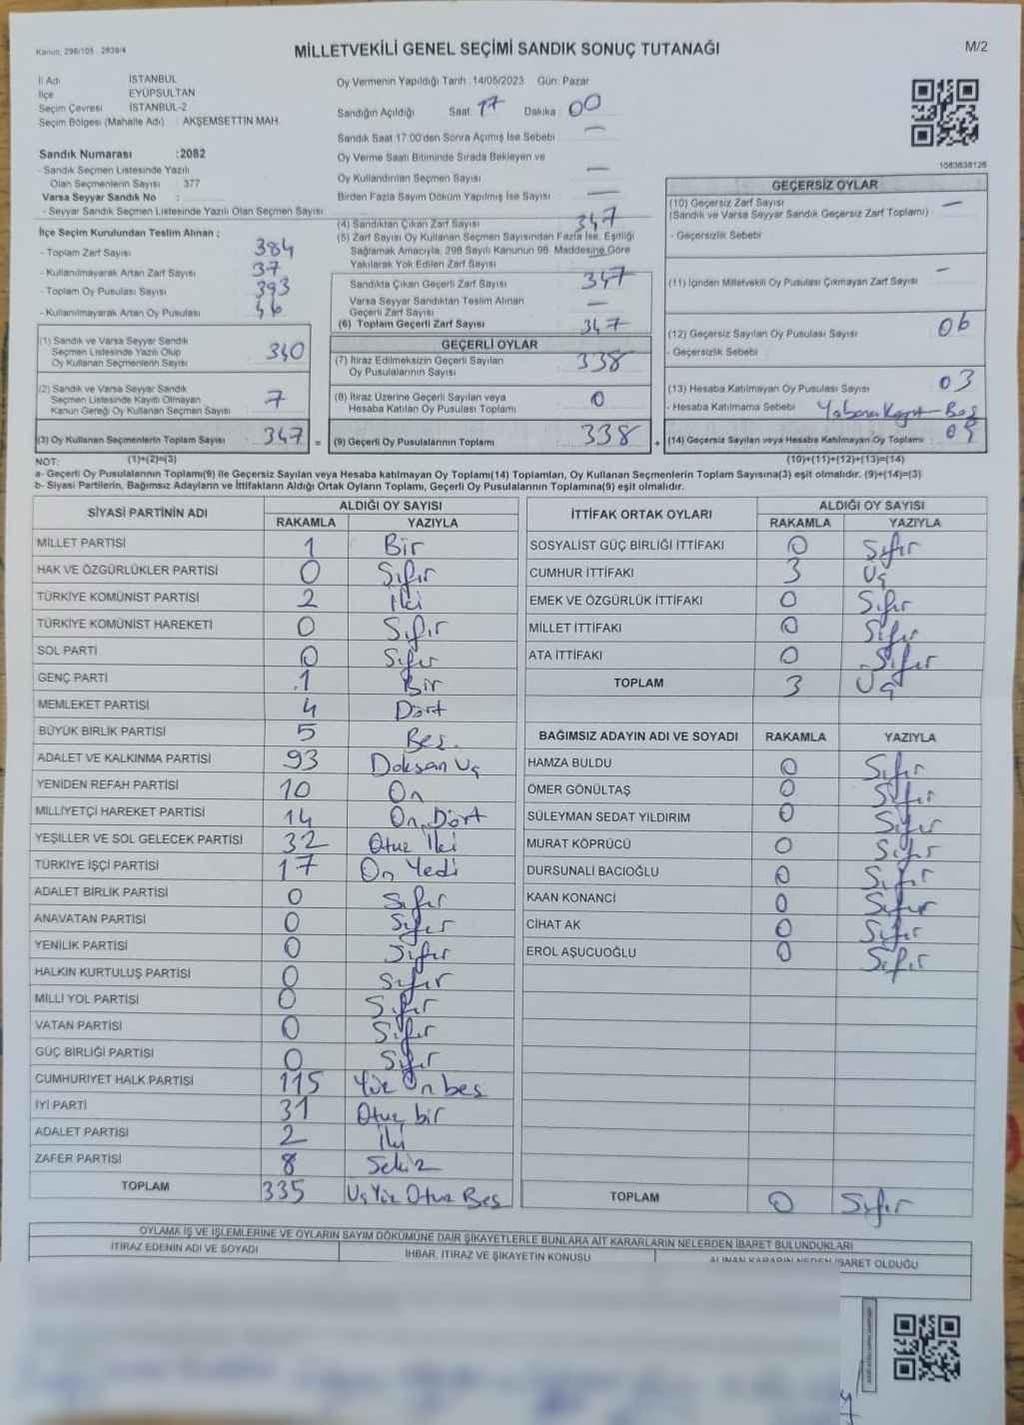 Kanun: 298/105 2839/4
MİLLETVEKİLİ GENEL SEÇİMİ SANDIK SONUÇ TUTANAĞI
M/2
İl Adı İSTANBUL
İlçe EYÜPSULTAN
Seçim Çevresi İSTANBUL-2
Seçim Bölgesi (Mahalle Adı) : AKŞEMSETTİN MAH.
Sandık Numarası :2082
- Sandık Seçmen Listesinde Yazılı
Olan Seçmenlerin Sayısı : 377
Varsa Seyyar Sandık No :
- Seyyar Sandık Seçmen Listesinde Yazılı Olan Seçmen Sayısı :
İlçe Seçim Kurulundan Teslim Alınan ;
- Toplam Zarf Sayısı 384
- Kullanılmayarak Artan Zarf Sayısı 37
- Toplam Oy Pusulası Sayısı 393
- Kullanılmayarak Artan Oy Pusulası 46
(1) Sandık ve Varsa Seyyar Sandık
Seçmen Listesinde Yazılı Olup
Oy Kullanan Seçmenlerin Sayısı 340
(2) Sandık ve Varsa Seyyar Sandık
Seçmen Listesinde Kaydı Olmayan
Kanun Gereği Oy Kullanan Seçmen Sayısı 7
(3) Oy Kullanan Seçmenlerin Toplam Sayısı 347 =
(1)+(2)=(3)
Oy Vermenin Yapıldığı Tarih :14/05/2023 Gün: Pazar
Sandığın Açıldığı Saat: 17 Dakika: 00
Sandık Saat 17:00'den Sonra Açılmış İse Sebebi —
Oy Verme Saati Bitiminde Sırada Bekleyen ve
Oy Kullandırılan Seçmen Sayısı —
Birden Fazla Sayım Döküm Yapılmış İse Sayısı —
(4) Sandıktan Çıkan Zarf Sayısı 347
(5) Zarf Sayısı Oy Kullanan Seçmen Sayısından Fazla İse, Eşitliği
Sağlamak Amacıyla, 298 Sayılı Kanunun 98. Maddesine Göre
Yakılarak Yok Edilen Zarf Sayısı —
Sandıkta Çıkan Geçerli Zarf Sayısı 347
Varsa Seyyar Sandıktan Teslim Alınan
Geçerli Zarf Sayısı —
(6) Toplam Geçerli Zarf Sayısı 347
GEÇERLİ OYLAR
(7) İtiraz Edilmeksizin Geçerli Sayılan
Oy Pusulalarının Sayısı 338
(8) İtiraz Üzerine Geçerli Sayılan veya
Hesaba Katılan Oy Pusulası Toplamı 0
(9) Geçerli Oy Pusulalarının Toplamı 338 +
1083638126
GEÇERSİZ OYLAR
(10) Geçersiz Zarf Sayısı —
(Sandık ve Varsa Seyyar Sandık Geçersiz Zarf Toplamı)
- Geçersizlik Sebebi :
(11) İçinden Milletvekili Oy Pusulası Çıkmayan Zarf Sayısı —
(12) Geçersiz Sayılan Oy Pusulası Sayısı 06
- Geçersizlik Sebebi :
(13) Hesaba Katılmayan Oy Pusulası Sayısı 03
- Hesaba Katılmama Sebebi : Boş
(14) Geçersiz Sayılan veya Hesaba Katılmayan Oy Toplamı 09
(10)+(11)+(12)+(13)=(14)
NOT:
a- Geçerli Oy Pusulalarının Toplamı(9) ile Geçersiz Sayılan veya Hesaba katılmayan Oy Toplamı(14) Toplamları, Oy Kullanan Seçmenlerin Toplam Sayısına(3) eşit olmalıdır. (9)+(14)=(3)
b- Siyasi Partilerin, Bağımsız Adayların ve İttifakların Aldığı Ortak Oyların Toplamı, Geçerli Oy Pusulalarının Toplamına(9) eşit olmalıdır.
SİYASİ PARTİNİN ADI ALDIĞI OY SAYISI
RAKAMLA YAZIYLA
MİLLET PARTİSİ 1 Bir
HAK VE ÖZGÜRLÜKLER PARTİSİ 0 Sıfır
TÜRKİYE KOMÜNİST PARTİSİ 2 İki
TÜRKİYE KOMÜNİST HAREKETİ 0 Sıfır
SOL PARTİ 0 Sıfır
GENÇ PARTİ 1 Bir
MEMLEKET PARTİSİ 4 Dört
BÜYÜK BİRLİK PARTİSİ 5 Beş
ADALET VE KALKINMA PARTİSİ 93 Doksan Üç
YENİDEN REFAH PARTİSİ 10 On
MİLLİYETÇİ HAREKET PARTİSİ 14 On Dört
YEŞİLLER VE SOL GELECEK PARTİSİ 32 Otuz İki
TÜRKİYE İŞÇİ PARTİSİ 17 On Yedi
ADALET BİRLİK PARTİSİ 0 Sıfır
ANAVATAN PARTİSİ 0 Sıfır
YENİLİK PARTİSİ 0 Sıfır
HALKIN KURTULUŞ PARTİSİ 0 Sıfır
MİLLİ YOL PARTİSİ 0 Sıfır
VATAN PARTİSİ 0 Sıfır
GÜÇ BİRLİĞİ PARTİSİ 0 Sıfır
CUMHURİYET HALK PARTİSİ 115 Yüz On beş
İYİ PARTİ 31 Otuz bir
ADALET PARTİSİ 2 İki
ZAFER PARTİSİ 8 Sekiz
TOPLAM 335 Üç Yüz Otuz Beş
İTTİFAK ORTAK OYLARI ALDIĞI OY SAYISI
RAKAMLA YAZIYLA
SOSYALİST GÜÇ BİRLİĞİ İTTİFAKI 0 Sıfır
CUMHUR İTTİFAKI 3 Üç
EMEK VE ÖZGÜRLÜK İTTİFAKI 0 Sıfır
MİLLET İTTİFAKI 0 Sıfır
ATA İTTİFAKI 0 Sıfır
TOPLAM 3 Üç
BAĞIMSIZ ADAYIN ADI VE SOYADI RAKAMLA YAZIYLA
HAMZA BULDU 0 Sıfır
ÖMER GÖNÜLTAŞ 0 Sıfır
SÜLEYMAN SEDAT YILDIRIM 0 Sıfır
MURAT KÖPRÜCÜ 0 Sıfır
DURSUNALİ BACIOĞLU 0 Sıfır
KAAN KONANCİ 0 Sıfır
CİHAT AK 0 Sıfır
EROL AŞUCUOĞLU 0 Sıfır
TOPLAM 0 Sıfır
OYLAMA İŞ VE İŞLEMLERİNE VE OYLARIN SAYIM DÖKÜMÜNE DAİR ŞİKAYETLERLE BUNLARA AİT KARARLARIN NELERDEN İBARET BULUNDUKLARI
İTİRAZ EDENİN ADI VE SOYADI İHBAR, İTİRAZ VE ŞİKAYETİN KONUSU ALINAN KARARIN NEDEN İBARET OLDUĞU